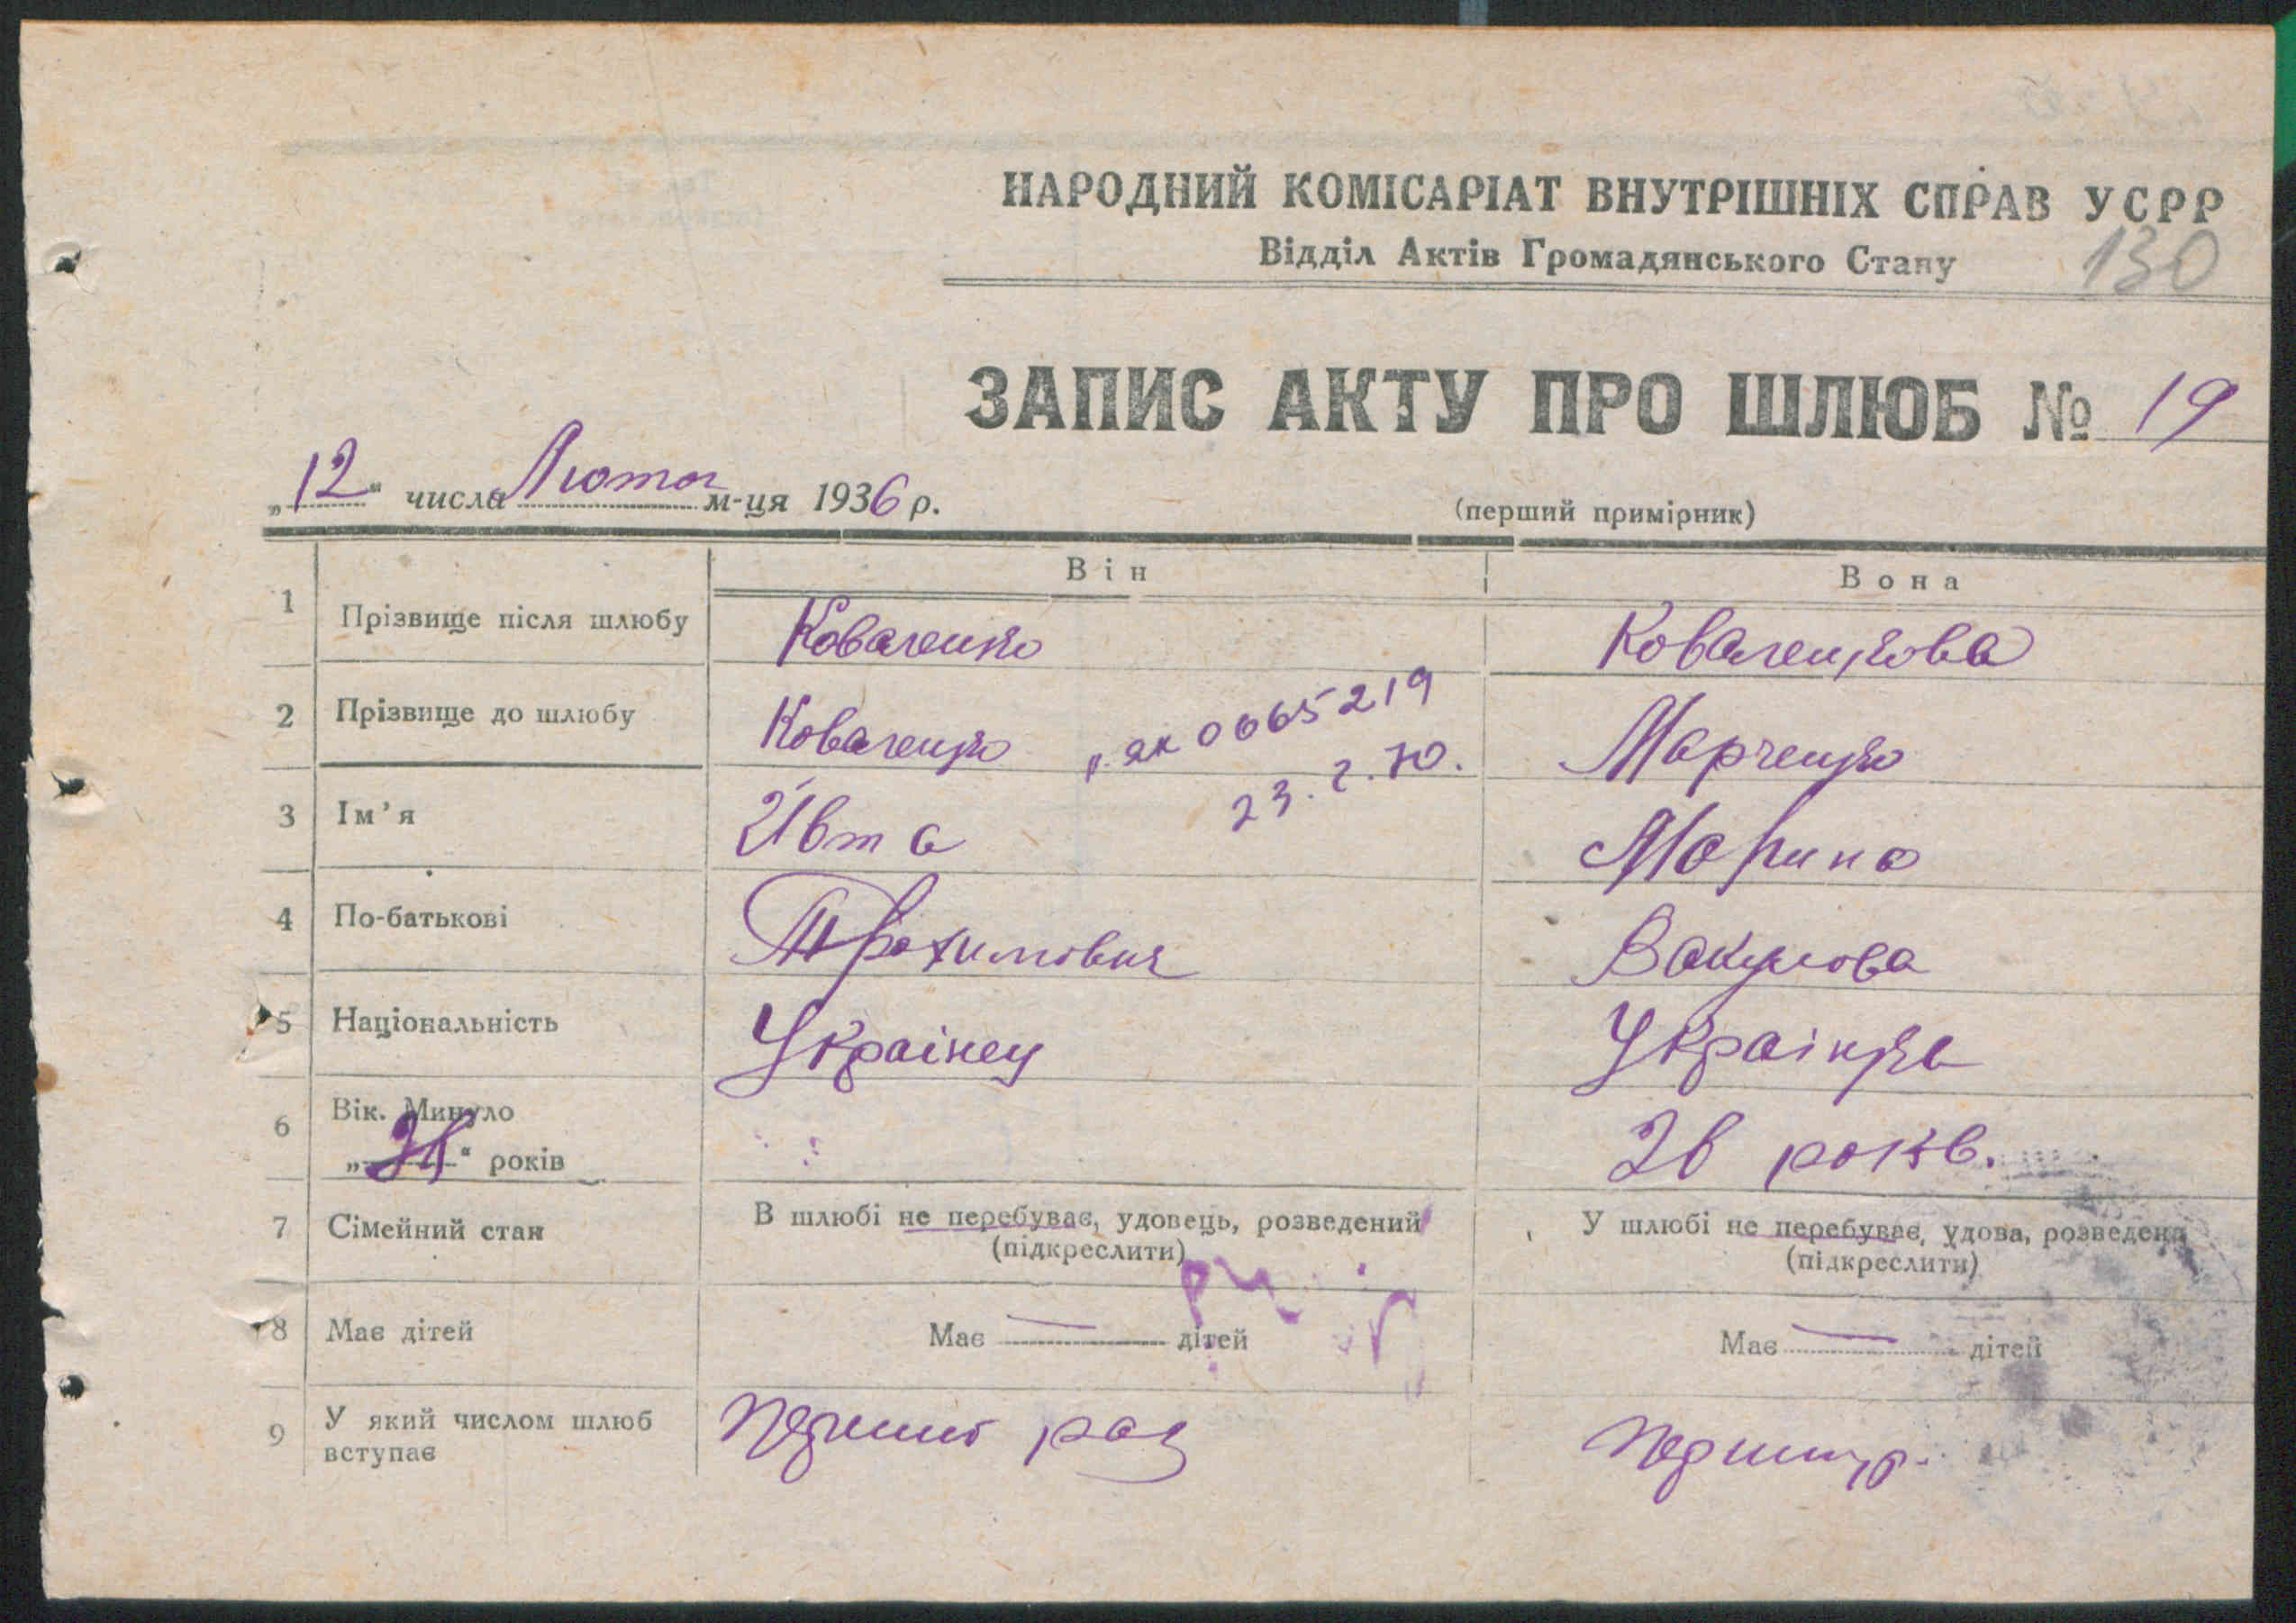 НАРОДНИЙ КОМІСАРІАТ ВНУТРІШНІХ СПРАВ УСРР
Відділ Актів Громадянського Стану 130
ЗАПИС АКТУ ПРО ШЛЮБ № 19
„12“ числа Лютого м-ця 1936 р.
(перший примірник)
Він Вона
1 Прізвище після шлюбу Коваленко Коваленкова
2 Прізвище до шлюбу Коваленко Марченко
ЯК 0665219
23. 2. 70.
3 Ім’я Ивта Марина
4 По-батькові Трохимович Вакулова
5 Національність Украінец Украінка
6 Вік. Минуло
„ “ років 26 років.
7 Сімейний стан В шлюбі не перебуває, удовець, розведений У шлюбі не перебуває, удова, розведена
(підкреслити) (підкреслити)
8 Має дітей Має — дітей Має — дітей
9 У який числом шлюб
вступає перший раз перший р.